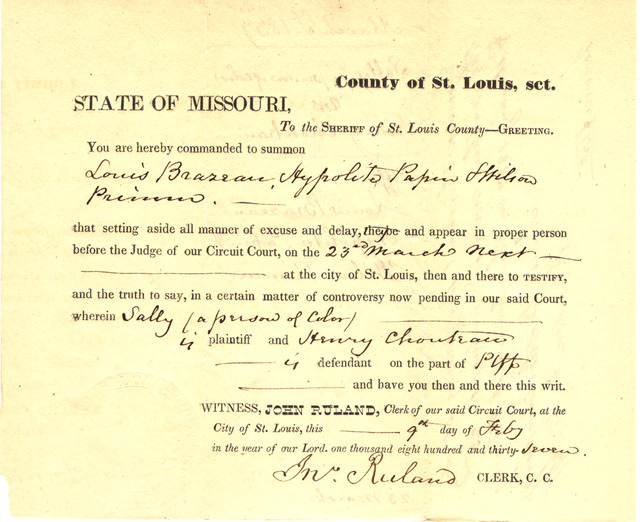 County of St. Louis, sct.
STATE OF MISSOURI,
To the SHERIFF of St. Louis County—GREETING.
You are hereby commanded to summon
Louis Brazeau, Hypolite Papin & Wilson
Primm. —
that setting aside all manner of excuse and delay, they be and appear in proper person
before the Judge of our Circuit Court, on the 23rd March next —
at the city of St. Louis, then and there to TESTIFY,
and the truth to say, in a certain matter of controversy now pending in our said Court,
wherein Sally (a person of Color)
is plaintiff and Henry Chouteau
is defendant on the part of Plff
and have you then and there this writ.
WITNESS, JOHN RULAND, Clerk of our said Circuit Court, at the
City of St. Louis, this — 9th day of Feby
in the year of our Lord, one thousand eight hundred and thirty-seven.
Jno. Ruland CLERK, C. C.